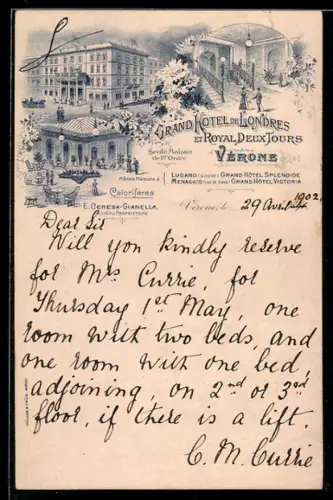 GRAND HÔTEL DE LONDRES
ET ROYAL DEUX TOURS
VÉRONE
Seule Maison
de 1er Ordre
Mêmes Maisons à
LUGANO (SUISSE) GRAND HÔTEL SPLENDIDE
MENAGGIO (LAC DE COME) GRAND HÔTEL VICTORIA
Calorifères
E. CERESA-GIANELLA,
NOUVEAU PROPRIÉTAIRE
Vérone, le 29 Avril 1902
Dear Sir
Will you kindly reserve
for Mrs Currie, for
Thursday 1st May, one
room with two beds, and
one room with one bed,
adjoining, on 2nd or 3rd
floor, if there is a lift.
C. M. Currie